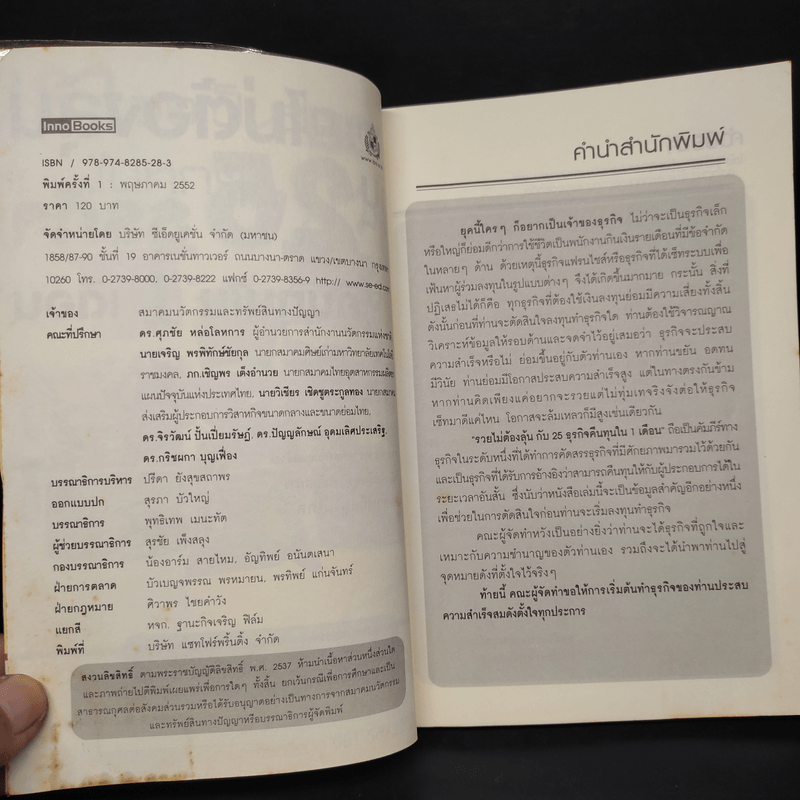 Inno Books
ISBN / 978-974-8285-28-3
พิมพ์ครั้งที่ 1 : พฤษภาคม 2552
ราคา 120 บาท
จัดจำหน่ายโดย บริษัท ซีเอ็ดยูเคชั่น จำกัด (มหาชน)
1858/87-90 ชั้นที่ 19 อาคารเนชั่นทาวเวอร์ ถนนบางนา-ตราด แขวง/เขตบางนา
10260 โทร. 0-2739-8000, 0-2739-8222 แฟกซ์ 0-2739-8356-9 http://www.se-ed.com
เจ้าของ สมาคมนวัตกรรมและทรัพย์สินทางปัญญา
คณะที่ปรึกษา ดร.ศุภชัย หล่อโลหการ ผู้อำนวยการสำนักงานนวัตกรรมแห่งชาติ
นายเจริญ พรพิทักษ์ชัยกุล นายกสมาคมศิษย์เก่ามหาวิทยาลัยเทคโนโลยี
ราชมงคล, ภก.เชิญพร เต็งอำนวย นายกสมาคมไทยอุตสาหกรรมผลิตยา
แผนปัจจุบันแห่งประเทศไทย, นายวิเชียร เชิดชูตระกูลทอง นายกสมาคม
ส่งเสริมผู้ประกอบการวิสาหกิจขนาดกลางและขนาดย่อมไทย,
ดร.จิรวัฒน์ ปั้นเปี่ยมรัษฎ์, ดร.ปัญญลักษณ์ อุดมเลิศประเสริฐ,
ดร.กริชผกา บุญเฟื่อง
บรรณาธิการบริหาร ปรีดา ยังสุขสถาพร
ออกแบบปก สุรภา บัวใหญ่
บรรณาธิการ พุทธิเทพ เมนะทัต
ผู้ช่วยบรรณาธิการ สุรชัย เพ็งสลุง
กองบรรณาธิการ น้องอาร์ม สายไหม, อัญทิพย์ อนันตเสนา
ฝ่ายการตลาด บัวเบญจพรรณ พรหมายน, พรทิพย์ แก่นจันทร์
ฝ่ายกฎหมาย ศิวาพร ไชยคำวัง
แยกสี หจก. ฐานะกิจเจริญ ฟิล์ม
พิมพ์ที่ บริษัท แซทโฟร์พริ้นติ้ง จำกัด
สงวนลิขสิทธิ์ ตามพระราชบัญญัติลิขสิทธิ์ พ.ศ. 2537 ห้ามนำเนื้อหาส่วนหนึ่งส่วนใด
และภาพถ่ายไปตีพิมพ์เผยแพร่เพื่อการใดๆ ทั้งสิ้น ยกเว้นกรณีเพื่อการศึกษาและเป็น
สาธารณกุศลต่อสังคมส่วนรวมหรือได้รับอนุญาตอย่างเป็นทางการจากสมาคมนวัตกรรม
และทรัพย์สินทางปัญญาหรือบรรณาธิการผู้จัดพิมพ์
คำนำสำนักพิมพ์
ยุคนี้ใครๆ ก็อยากเป็นเจ้าของธุรกิจ ไม่ว่าจะเป็นธุรกิจเล็ก
หรือใหญ่ก็ย่อมดีกว่าการใช้ชีวิตเป็นพนักงานกินเงินรายเดือนที่มีข้อจำกัด
ในหลายๆ ด้าน ด้วยเหตุนี้ธุรกิจแฟรนไชส์หรือธุรกิจที่ได้เซ็ทระบบเพื่อ
เฟ้นหาผู้ร่วมลงทุนในรูปแบบต่างๆ จึงได้เกิดขึ้นมากมาย กระนั้น สิ่งที่
ปฏิเสธไม่ได้ก็คือ ทุกธุรกิจที่ต้องใช้เงินลงทุนย่อมมีความเสี่ยงทั้งสิ้น
ดังนั้นก่อนที่ท่านจะตัดสินใจลงทุนทำธุรกิจใด ท่านต้องใช้วิจารณญาณ
วิเคราะห์ข้อมูลให้รอบด้านและจดจำไว้อยู่เสมอว่า ธุรกิจจะประสบ
ความสำเร็จหรือไม่ ย่อมขึ้นอยู่กับตัวท่านเอง หากท่านขยัน อดทน
มีวินัย ท่านย่อมมีโอกาสประสบความสำเร็จสูง แต่ในทางตรงกันข้าม
หากท่านคิดเพียงแค่อยากจะรวยแต่ไม่ทุ่มเทจริงจังต่อให้ธุรกิจ
เซ็ทมาดีแค่ไหน โอกาสจะล้มเหลวก็มีสูงเช่นเดียวกัน
"รวยไม่ต้องลุ้น กับ 25 ธุรกิจคืนทุนใน 1 เดือน" ถือเป็นคัมภีร์ทาง
ธุรกิจในระดับหนึ่งที่ได้ทำการคัดสรรธุรกิจที่มีศักยภาพมารวมไว้ด้วยกัน
และเป็นธุรกิจที่ได้รับการอ้างอิงว่าสามารถคืนทุนให้กับผู้ประกอบการได้ใน
ระยะเวลาอันสั้น ซึ่งนับว่าหนังสือเล่มนี้จะเป็นข้อมูลสำคัญอีกอย่างหนึ่ง
เพื่อช่วยในการตัดสินใจก่อนท่านจะเริ่มลงทุนทำธุรกิจ
คณะผู้จัดทำหวังเป็นอย่างยิ่งว่าท่านจะได้ธุรกิจที่ถูกใจและ
เหมาะกับความชำนาญของตัวท่านเอง รวมถึงจะได้นำพาท่านไปสู่
จุดหมายดังที่ตั้งใจไว้จริงๆ
ท้ายนี้ คณะผู้จัดทำขอให้การเริ่มต้นทำธุรกิจของท่านประสบ
ความสำเร็จสมดังตั้งใจทุกประการ